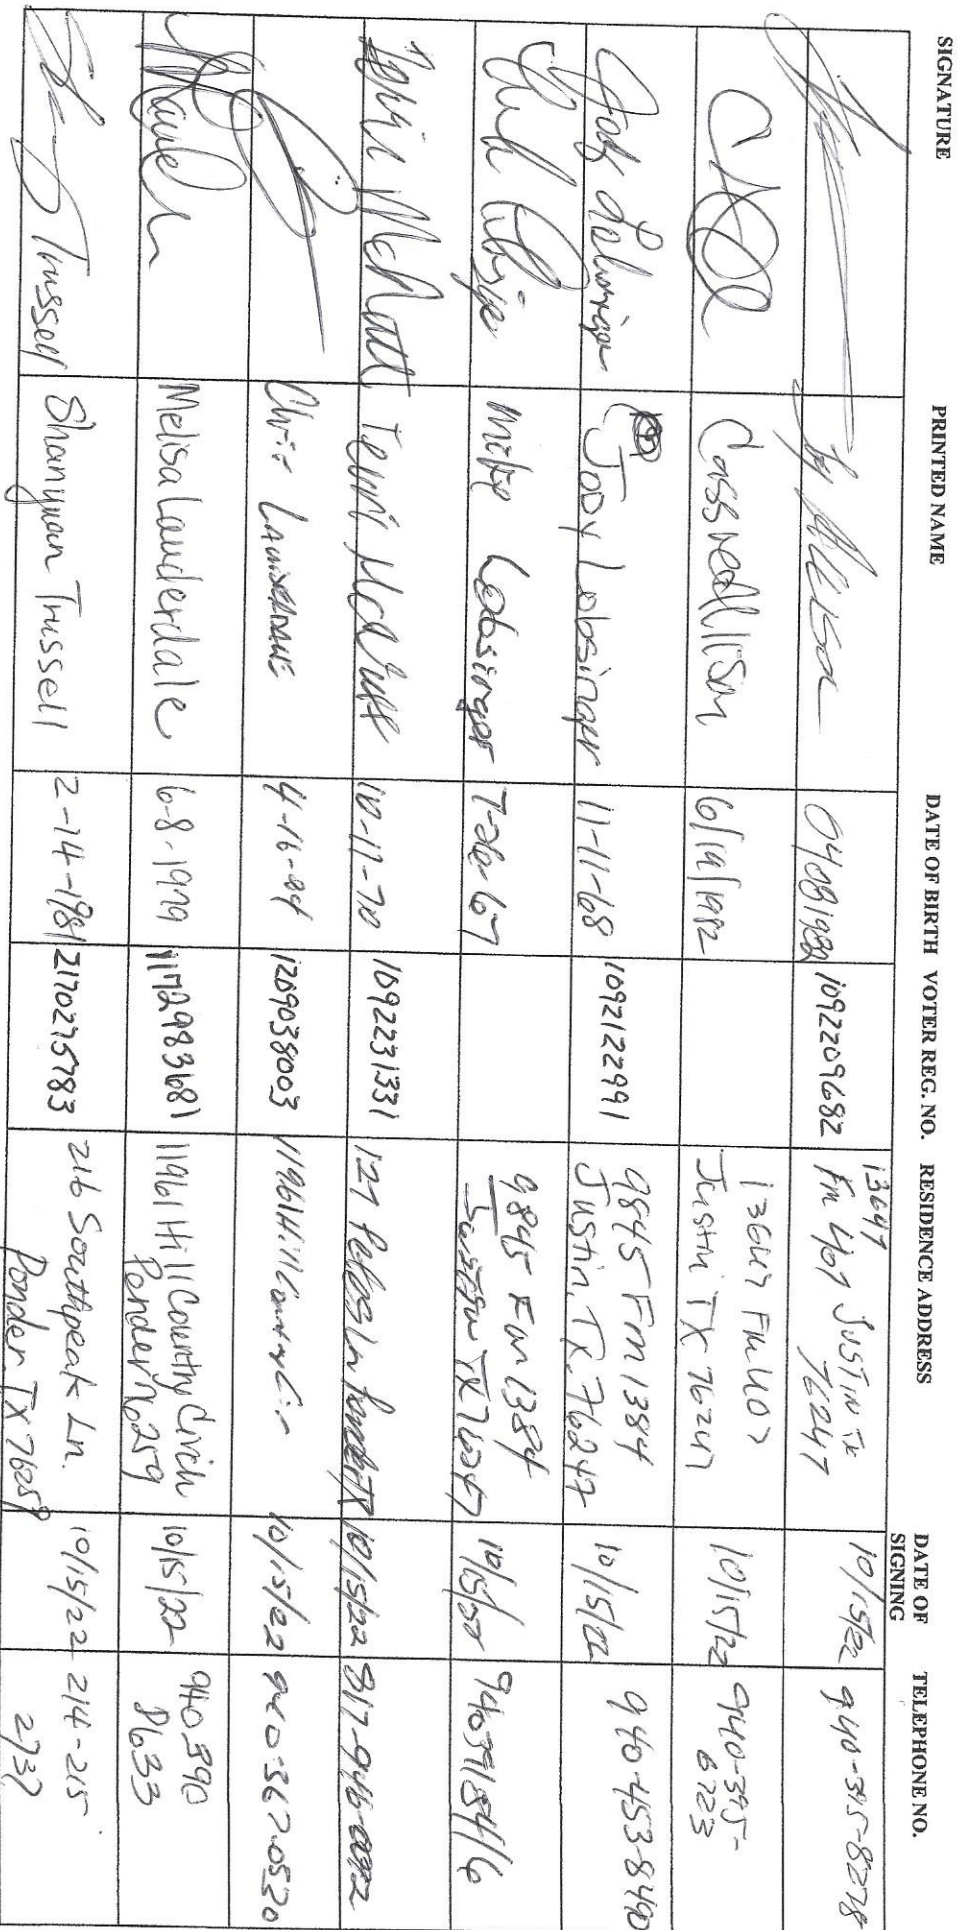 SIGNATURE PRINTED NAME DATE OF BIRTH VOTER REG. NO. RESIDENCE ADDRESS DATE OF SIGNING TELEPHONE NO.
04081982 1092209682 13647 Fm 407 JUSTIN TX 76247 10/15/22 940-395-8278
Cassie Allison 6/19/1982 13647 FM 407 Justin TX 76247 10/15/22 940-395-6723
Jody Lobsinger Jody Lobsinger 11-11-68 1092122991 9845 Fm 1384 Justin, TX. 76247 10/15/22 940-453-8490
Mike Lobsinger 7-26-67 9845 Fm 1384 Justin TX 76247 10/15/22 9403918416
Terri McNutt Terri McNutt 10-17-70 1092231331 127 Ln Ponder TX 10/15/22
Chris LAUDERDALE 4-16-84 1209038003 11961 Hill Country Cir 10/15/22 940-367-0530
Melisa Lauderdale 6-8-1979 1172983681 11961 Hill Country Circle Ponder 76259 10/15/22 940 390 8633
Trussell Shannyuan Trussell 2-14-1981 2170275783 216 Southpeak Ln. Ponder TX 76259 10/15/22 214-215-2737